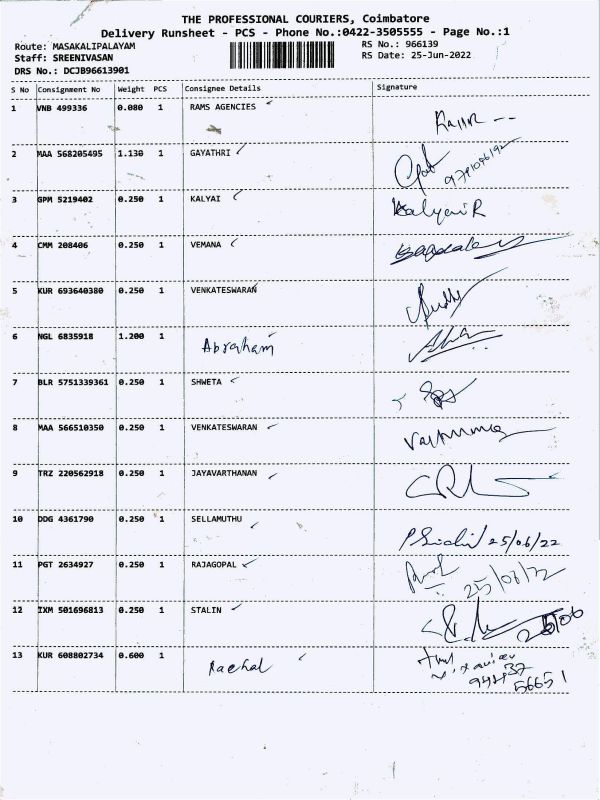 THE PROFESSIONAL COURIERS, Coimbatore
Delivery Runsheet - PCS - Phone No.:0422-3505555 - Page No.:1
Route: MASAKALIPALAYAM RS No.: 966139
Staff: SREENIVASAN RS Date: 25-Jun-2022
DRS No.: DCJB96613901
S No Consignment No Weight PCS Consignee Details Signature
1 VNB 499336 0.080 1 RAMS AGENCIES
2 MAA 568205495 1.130 1 GAYATHRI
3 GPM 5219402 0.250 1 KALYAI Kalyani R
4 CMM 208406 0.250 1 VEMANA
5 KUR 693640380 0.250 1 VENKATESWARAN
6 NGL 6835918 1.200 1 Abraham
7 BLR 5751339361 0.250 1 SHWETA
8 MAA 566510350 0.250 1 VENKATESWARAN
9 TRZ 220562918 0.250 1 JAYAVARTHANAN
10 DDG 4361790 0.250 1 SELLAMUTHU 25/06/22
11 PGT 2634927 0.250 1 RAJAGOPAL
12 IXM 501696813 0.250 1 STALIN
13 KUR 608802734 0.600 1 Rachal
56651